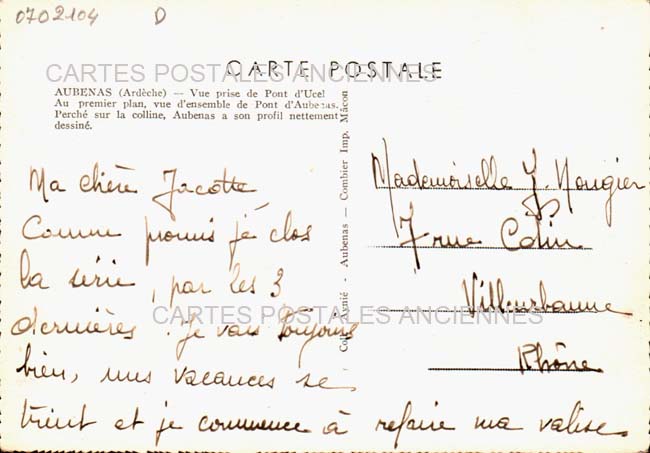 0702104 D
CARTE POSTALE
CARTES POSTALES ANCIENNES
AUBENAS (Ardèche) — Vue prise de Pont d'Ucel
Au premier plan, vue d'ensemble de Pont d'Aubenas.
Perché sur la colline, Aubenas a son profil nettement
dessiné.
Ma chère Jacotte
Comme promis je clos
la série, par les 3
dernières. Je vais toujours
bien, mes vacances se
tirent et je commence à refaire ma valise.
- Aubenas — Combier Imp. Mâcon
Mademoiselle J. Nougier
7 rue Colin
Villeurbanne
Rhône
CARTES POSTALES ANCIENNES